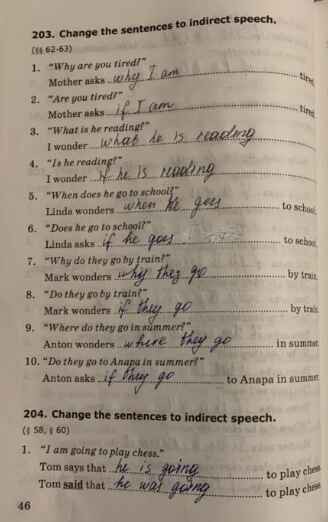 203. Change the sentences to indirect speech.
(§§ 62-63)
1. "Why are you tired?"
Mother asks why I am tired
2. "Are you tired?"
Mother asks if I am tired
3. "What is he reading?"
I wonder what he is reading
4. "Is he reading?"
I wonder if he is reading
5. "When does he go to school?"
Linda wonders when he goes to school.
6. "Does he go to school?"
Linda asks if he goes to school.
7. "Why do they go by train?"
Mark wonders why they go by train.
8. "Do they go by train?"
Mark wonders if they go by train.
9. "Where do they go in summer?"
Anton wonders where they go in summer.
10. "Do they go to Anapa in summer?"
Anton asks if they go to Anapa in summer.
204. Change the sentences to indirect speech.
(§ 58, § 60)
1. "I am going to play chess."
Tom says that he is going to play chess.
Tom said that he was going to play chess.
46